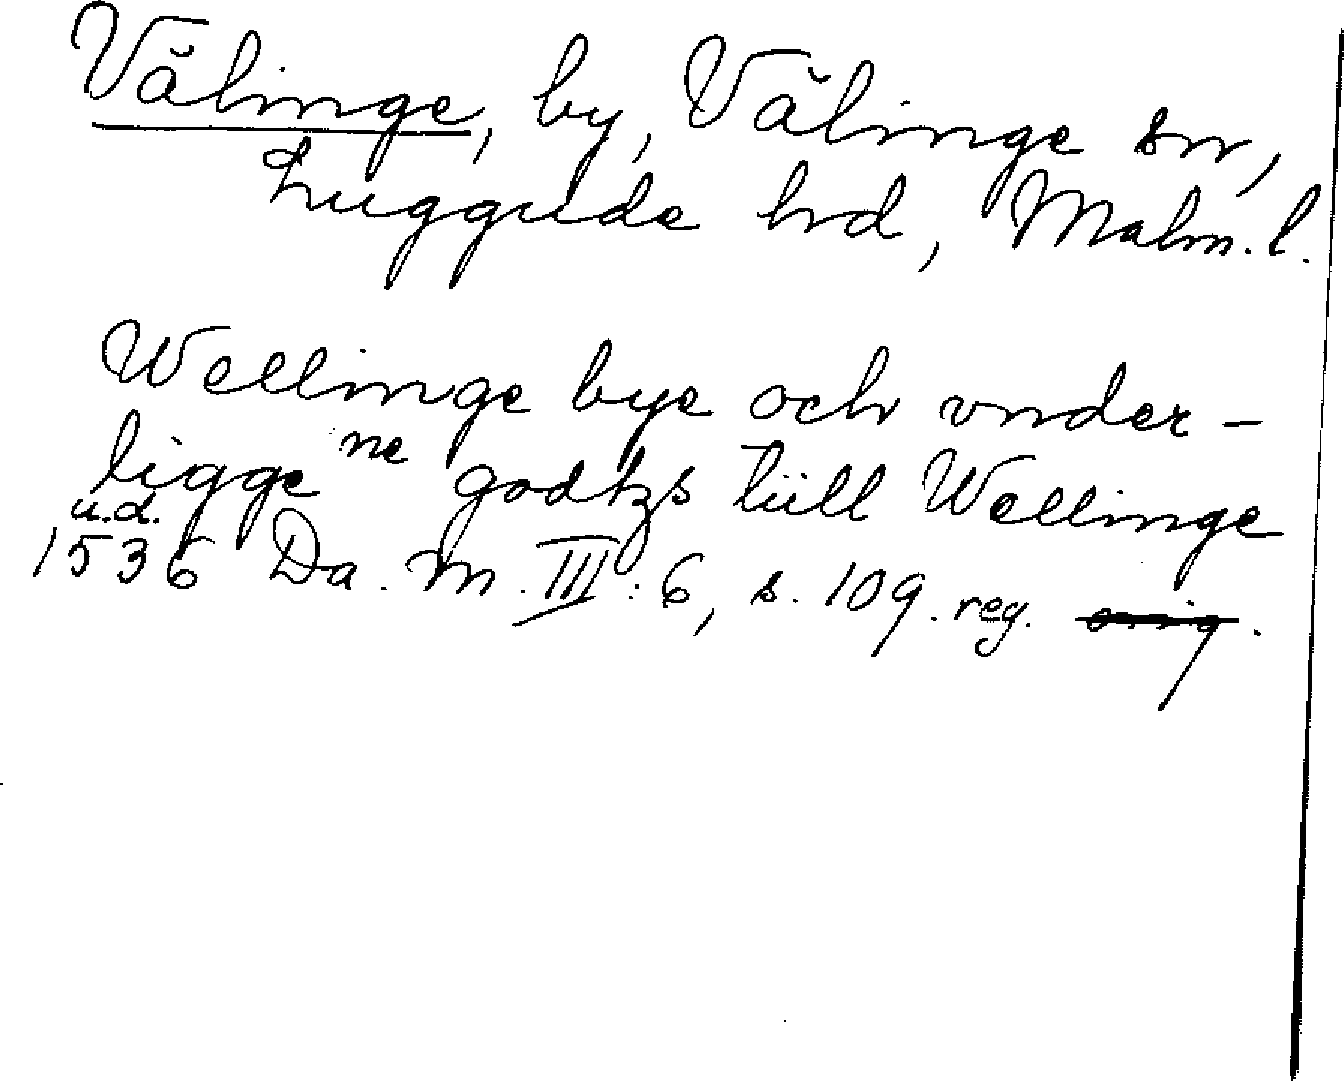 Vălinge, by, Vălinge sn,
Luggude hd, Malm. l.
Wellinge bye och vnder-
ligge ne godtzs tiill Wellinge
u.d.
1536 Da. M. III: 6, s. 109. reg. orig.